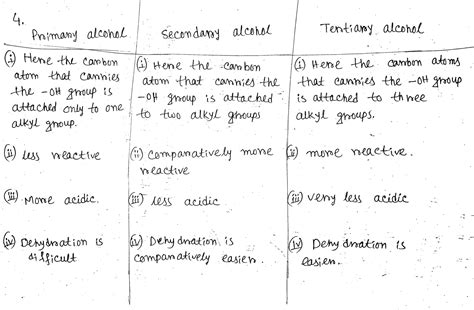 4.
Primary alcohol
Secondary alcohol
Tertiary alcohol
(i) Here the carbon
atom that carries
the -OH group is
attached only to one
alkyl group.
(i) Here the carbon
atom that carries the
-OH group is attached
to two alkyl groups
(i) Here the carbon atoms
that carries the -OH group
is attached to three
alkyl groups.
(ii) less reactive
(ii) comparatively more
reactive
(ii) more reactive.
(iii) More acidic.
(iii) less acidic
(iii) very less acidic
(iv) Dehydration is
difficult
(iv) Dehydration is
comparatively easier.
(iv) Dehydration is
easier.